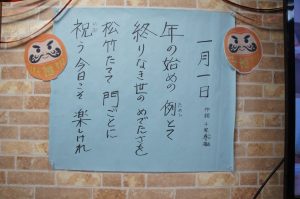 一月一日
作詞 千家尊福
年の始めの 例とて
ためし
終りなき世の めでたさを
松竹たてて 門ごとに
祝う 今日こそ 楽しけれ